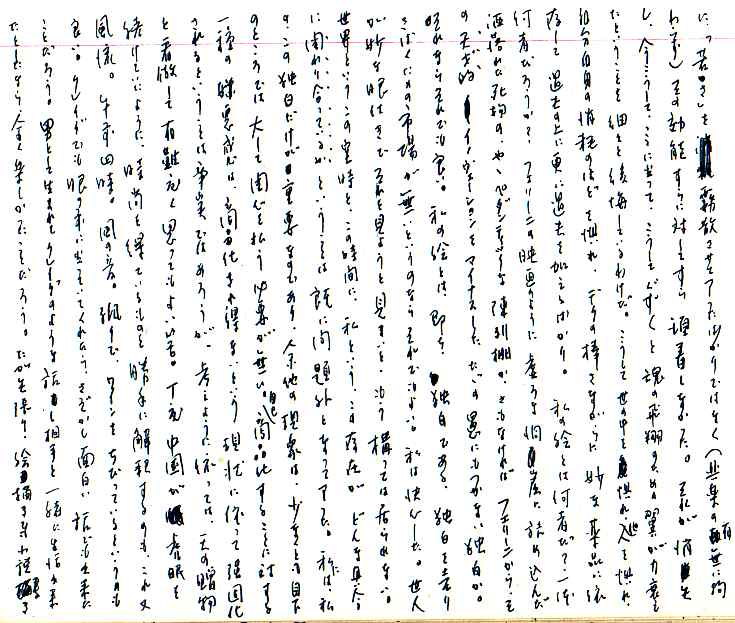 苦さを霧散させて ばかりではなく(其 の有無に拘
わらず)その効能すらに対してすら しなかった。それが
し、今こうして、ここに至って、こうして と魂の飛翔のための翼が力衰え
たということを細々と後悔しているわけだ。こうして世の中を れ、人を れ、
自分自身の消耗のほどを れ、一本の棒さながらに妙な薬品に依
存して過去の上に更に過去を加えるばかり。私の絵とは何者だ?一体
何者だろうか?フェリーニの映画のように虚ろな洞窟に詰め込んだ
洒落た死物の、ややペダンティックな陳列棚か、さもなければフェリーニからそ
の天才的イノヴェーションをマイナスしただの愚にもつかない独白か。
それならそれでも良い。私の絵とは、即ち独白である。独白を売り
さばくための市場が無いというのならそれでもよい。私は決心した。世人
が妙な眼付きでそれを見ようと見まいと、もう構っては居られない。
世界というこの空時と、この時間に、私という、この存在がどんな具合
に関わり合っているかということは既に問題外となって た。私には、私
のこの独白だけが重要なのであり、 他の現象は、少なくとも目下
のところでは大して関心を払う必要が無い。自己商品化することに対する
一種の嫌悪感は、商品化され得ないという現状に依って強固化
されるということは事実ではあろうが、考えように依っては、天の贈物
と看做して有難く思ってもよい筈。丁度中国が 眠を
続けたように、時 を得ているものと勝手に解釈するのも、これ又
風流。午前四時。風の音。独りでワインをちびっているというのも
良い。 でも眼の前に出て来てくれたら、さぞかし面白い話でも出来た
ことだろう。男と生まれ のような話し相手と一緒に生活出来
たとしたなら全く楽しかったことだろう。だが矢張り、絵描き